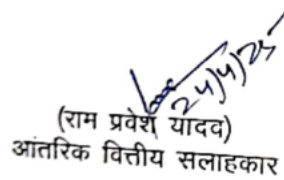 24/4/25
(राम प्रवेश यादव)
आंतरिक वित्तीय सलाहकार